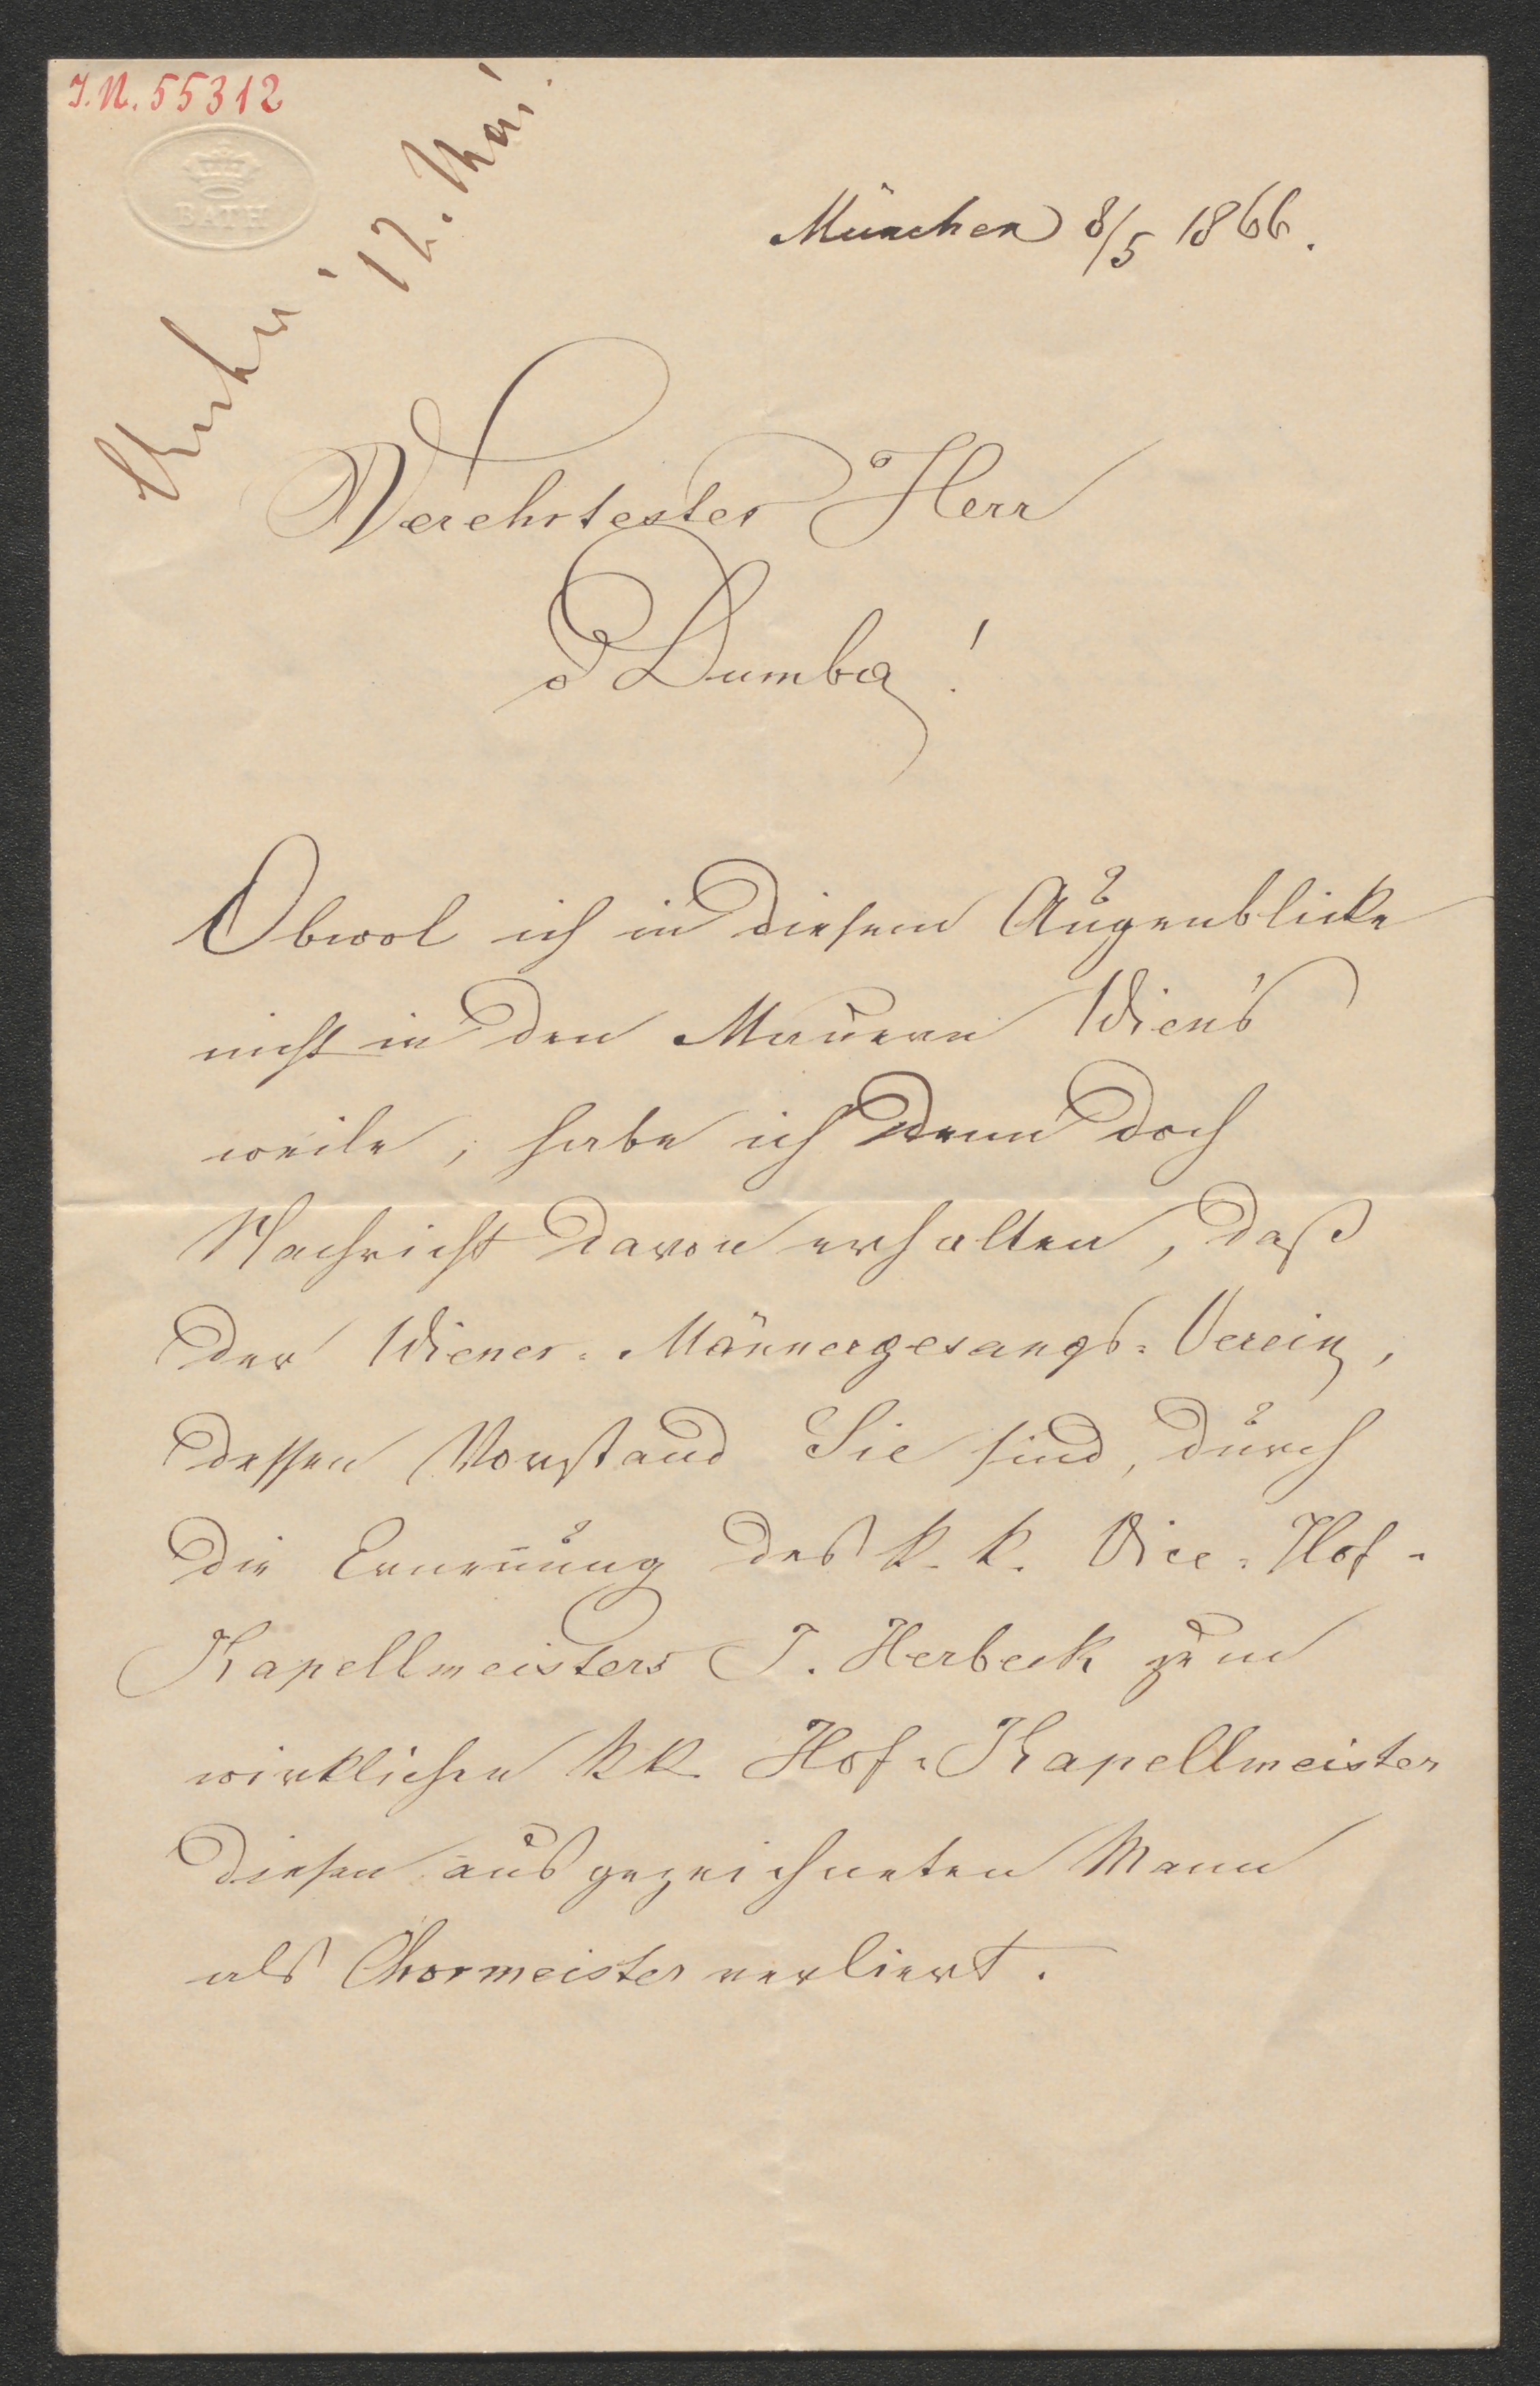 I.N. 55312
BATH
12. Mai
München 8/5 1866.
Verehrtester Herr
Dumba!
Obwol ich in diesem Augenblicke
nicht in den Mauern Wien's
weile, habe ich denn doch
Nachricht davon erhalten, daß
der Wiener-Männergesangs-Verein,
dessen Vorstand Sie sind, durch
die Ernennung des k. k. Vice-Hof-
Kapellmeisters J. Herbeck zum
wirklichen k k. Hof-Kapellmeister
diesen ausgezeichneten Mann
als Chormeister verliert.